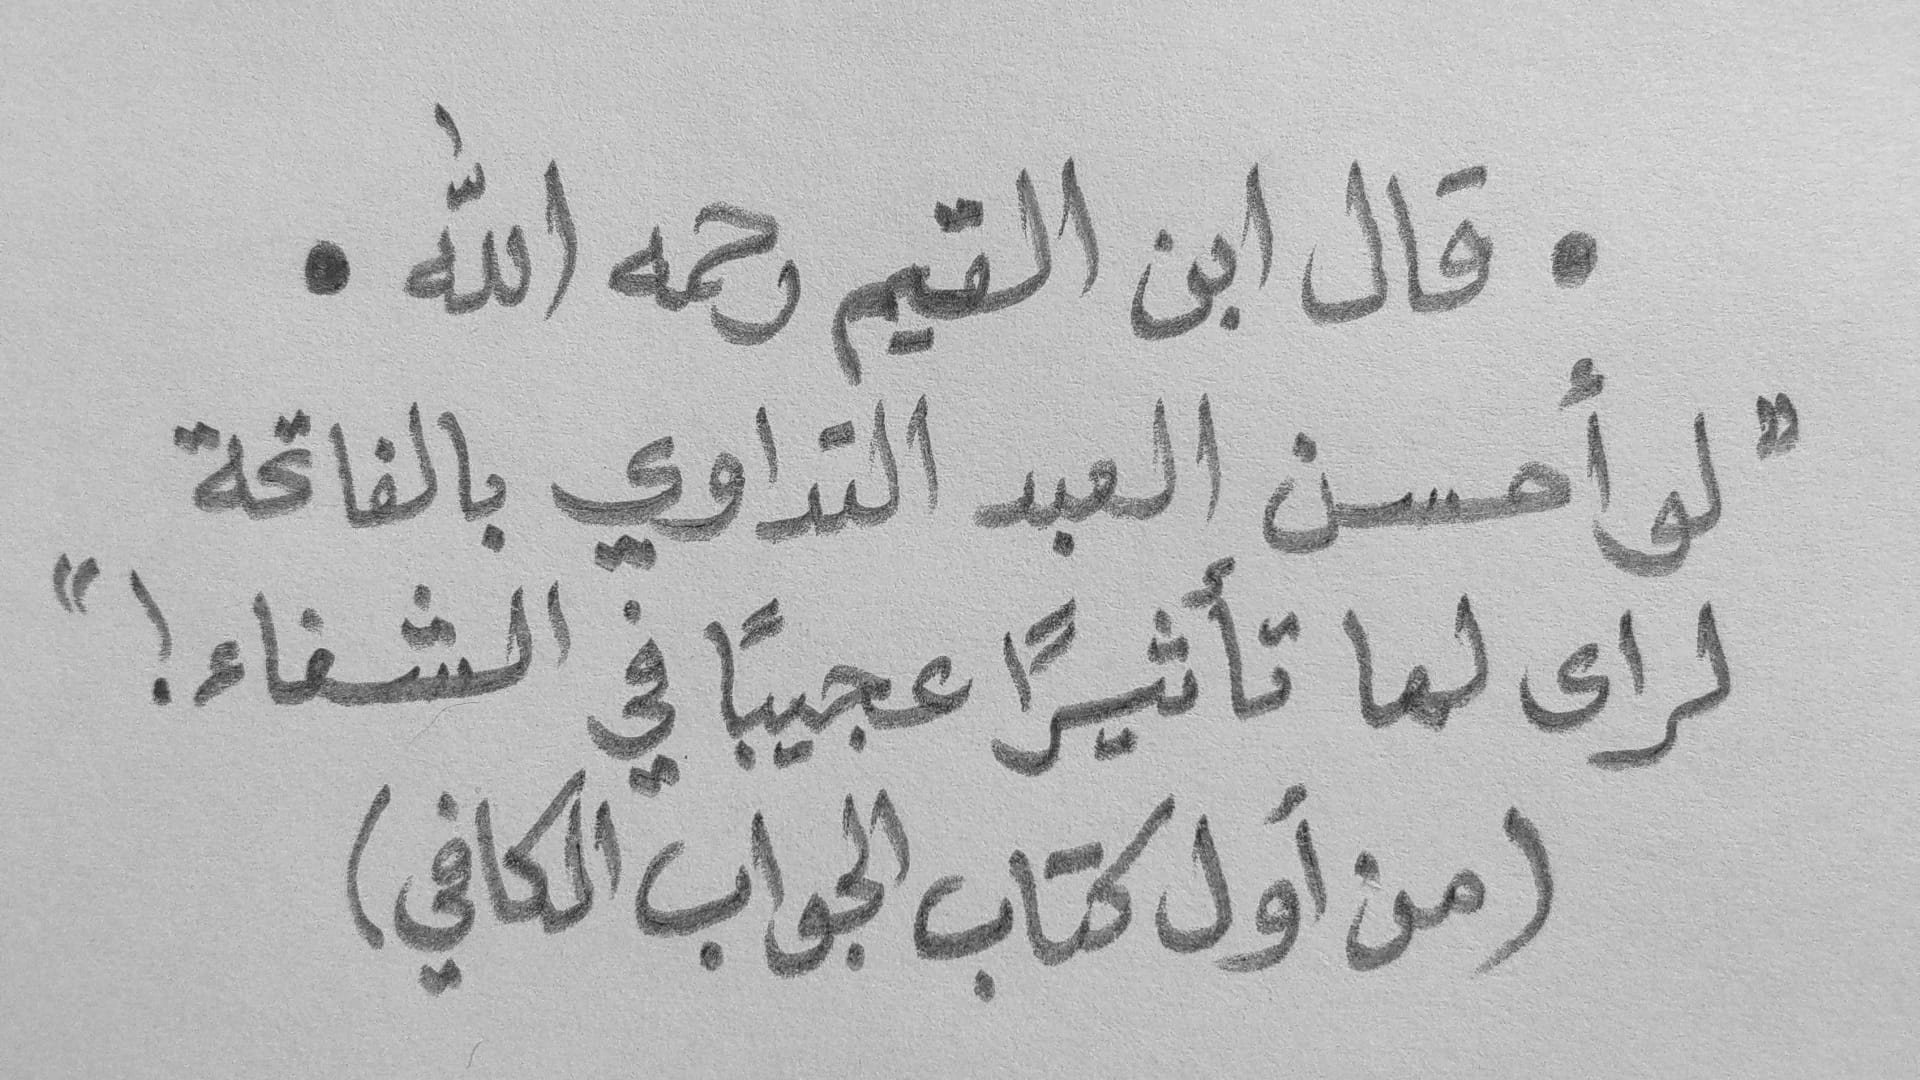 • قال ابن القيم رحمه اللّٰه •
"لو أحسن العبد التداوي بالفاتحة
لراى لها تأثيرًا عجيبًا في الشفاء!"
(من أول كتاب الجواب الكافي)